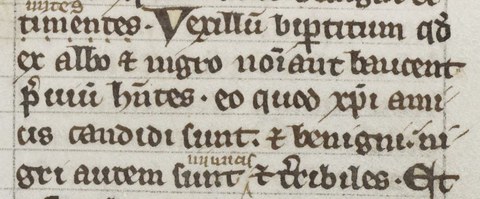 mites
timentes. Vexillū bip̱titum qđ
ex albo & nigro noīant baucent
p̄uiū hn̄tes. eo quod xp̄i ami
cis candidi sunt. & benigni. ni
inimicis
gri autem sunt & t̄ribiles. Et